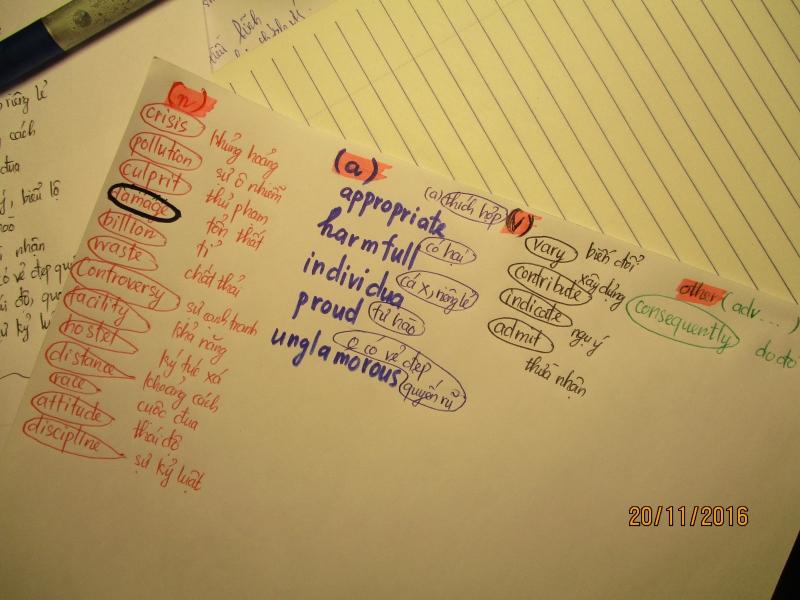 (n)
crisis khủng hoảng
pollution sự ô nhiễm
culprit thủ phạm
damage tổn thất
billion tỉ
waste chất thải
controversy sự cạnh tranh
facility khả năng
hostel ký túc xá
distance khoảng cách
race cuộc đua
attitude thái độ
discipline sự kỷ luật
(a)
appropriate (a) thích hợp
harmfull có hại
individua cá x, riêng lẻ
proud tự hào
unglamorous o có vẻ đẹp
quyến rũ
(v)
vary biến đổi
contribute xây dựng
indicate ngụ ý
admit
thừa nhận
other (adv...)
consequently do đó
riêng lẻ
cách
đua
, biểu lộ
nhận
có vẻ đẹp quy
20/11/2016